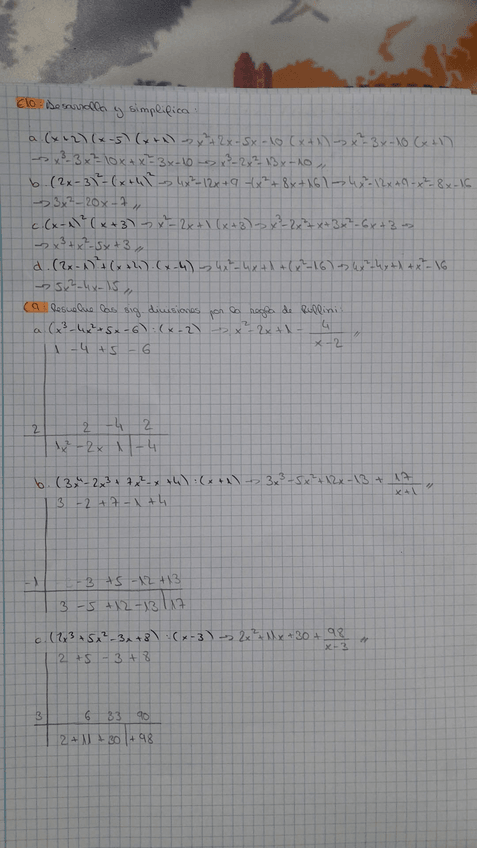 C10. Desarrolla y simplifica:
a. (x+2)(x-5)(x+1) → x²+2x-5x-10 (x+1) → x²-3x-10 (x+1)
→ x³-3x²-10x+x²-3x-10 → x³-2x²-13x-10 //
b. (2x-3)²-(x+4)² → 4x²-12x+9-(x²+8x+16) → 4x²-12x+9-x²-8x-16
→ 3x²-20x-7 //
c. (x-1)² (x+3) → x²-2x+1 (x+3) → x³-2x²+x+3x²-6x+3 →
→ x³+x²-5x+3 //
d. (2x-1)²+(x+4)·(x-4) → 4x²-4x+1+(x²-16) → 4x²-4x+1+x²-16
→ 5x²-4x-15 //
C9. Resuelve las sig. divisiones por la regla de Ruffini
a. (x³-4x²+5x-6):(x-2) → x²-2x+1 - 4/(x-2) //
1 -4 +5 -6
2 2 -4 2
1x² -2x 1 | -4
b. (3x⁴-2x³+7x²-x+4):(x+1) → 3x³-5x²+12x-13 + 17/(x+1) //
3 -2 +7 -1 +4
-1 -3 +5 -12 +13
3 -5 +12 -13 | 17
c. (2x³+5x²-3x+8):(x-3) → 2x²+11x+30 + 98/(x-3) //
2 +5 -3 +8
3 6 33 90
2 +11 +30 | +98